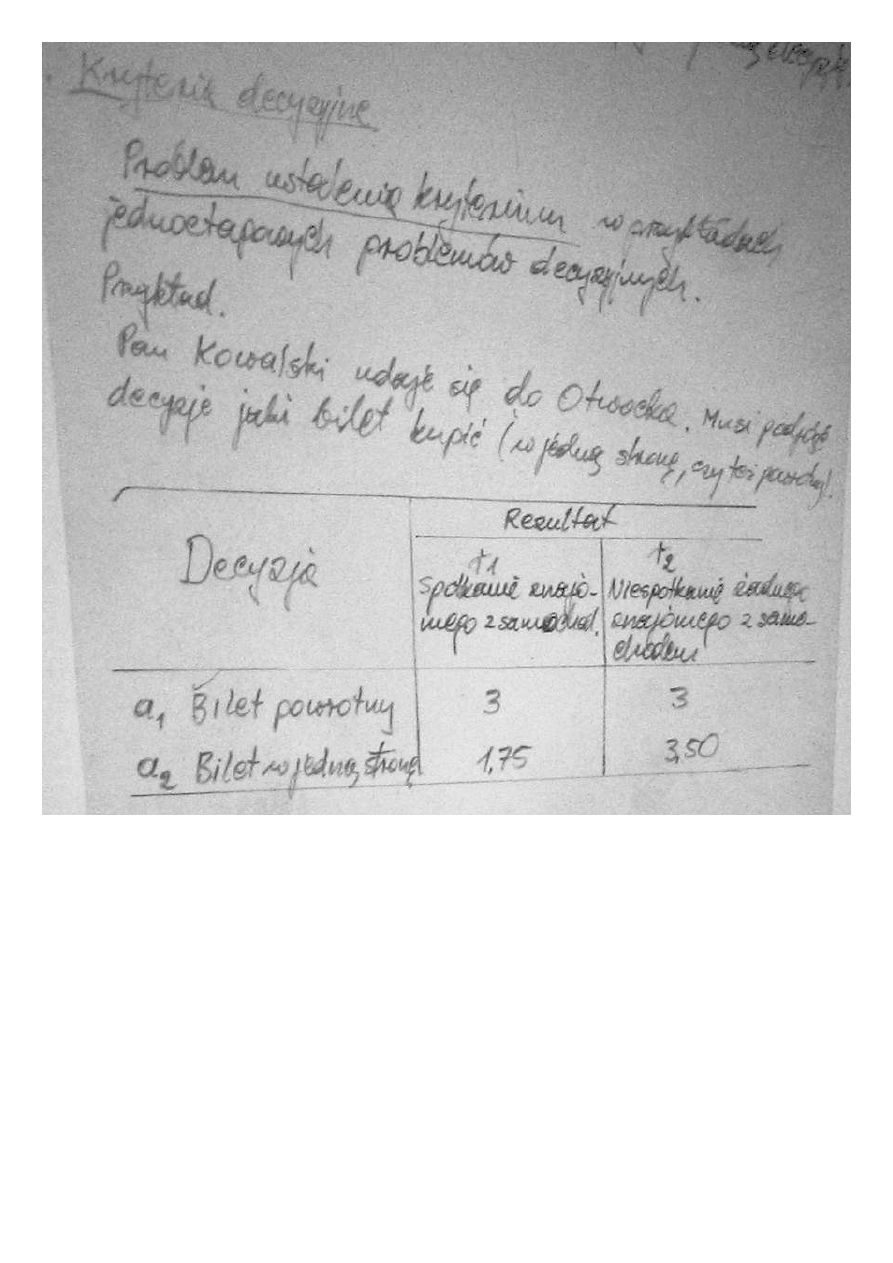 Kryteria decyzyjne
Problem ustalenia kryterium w przykładach
jednoetapowych problemów decyzyjnych.
Przykład.
Pan Kowalski udaje się do Otwocka. Musi podjąć
decyzję jaki bilet kupić (w jedną stronę, czy też powrotny).
Decyzja
Rezultat
t1
t2
Spotkanie znajo-
mego z samochod.
Niespotkanie żadnego
znajomego z samo-
chodem
a1 Bilet powrotny 3 3
a2 Bilet w jedną stronę 1,75 3,50